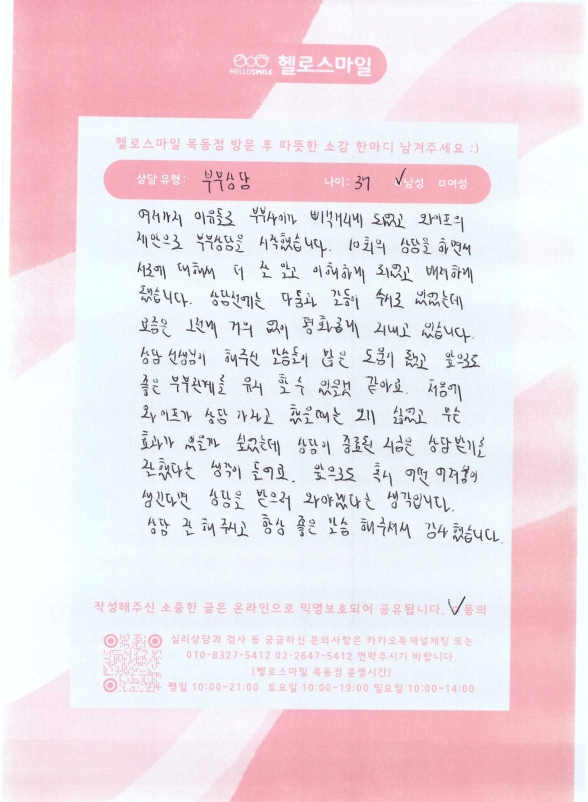 HELLOSMILE 헬로스마일
헬로스마일 목동점 방문 후 따뜻한 소감 한마디 남겨주세요 :)
상담 유형: 부부상담 나이: 37 ✓남성 □여성
여러가지 이유들로 부부사이가 삐걱거리게 되었고 와이프의
제안으로 부부상담을 시작했습니다. 10회의 상담을 하면서
서로에 대해서 더 잘 알고 이해하게 되었고 배려하게
됐습니다. 상담전에는 다툼과 갈등이 수시로 있었는데
요즘은 그런게 거의 없이 평화롭게 지내고 있습니다.
상담 선생님이 해주신 말씀들이 많은 도움이 됐고 앞으로도
좋은 부부관계를 유지 할 수 있을것 같아요. 처음에
와이프가 상담 가자고 했을때는 오기 싫었고 무슨
효과가 있을까 싶었는데 상담이 종료된 지금은 상담받기를
잘했다는 생각이 들어요. 앞으로도 혹시 어떤 어려움이
생긴다면 상담을 받으러 와야겠다는 생각입니다.
상담 잘 해주시고 항상 좋은 말씀 해주셔서 감사했습니다.
작성해주신 소중한 글은 온라인으로 익명보호되어 공유됩니다. ✓동의
심리상담과 검사 등 궁금하신 문의사항은 카카오톡채널채팅 또는
010-8327-5412 02-2647-5412 연락주시기 바랍니다.
[헬로스마일 목동점 운영시간]
평일 10:00~21:00 토요일 10:00~19:00 일요일 10:00~14:00